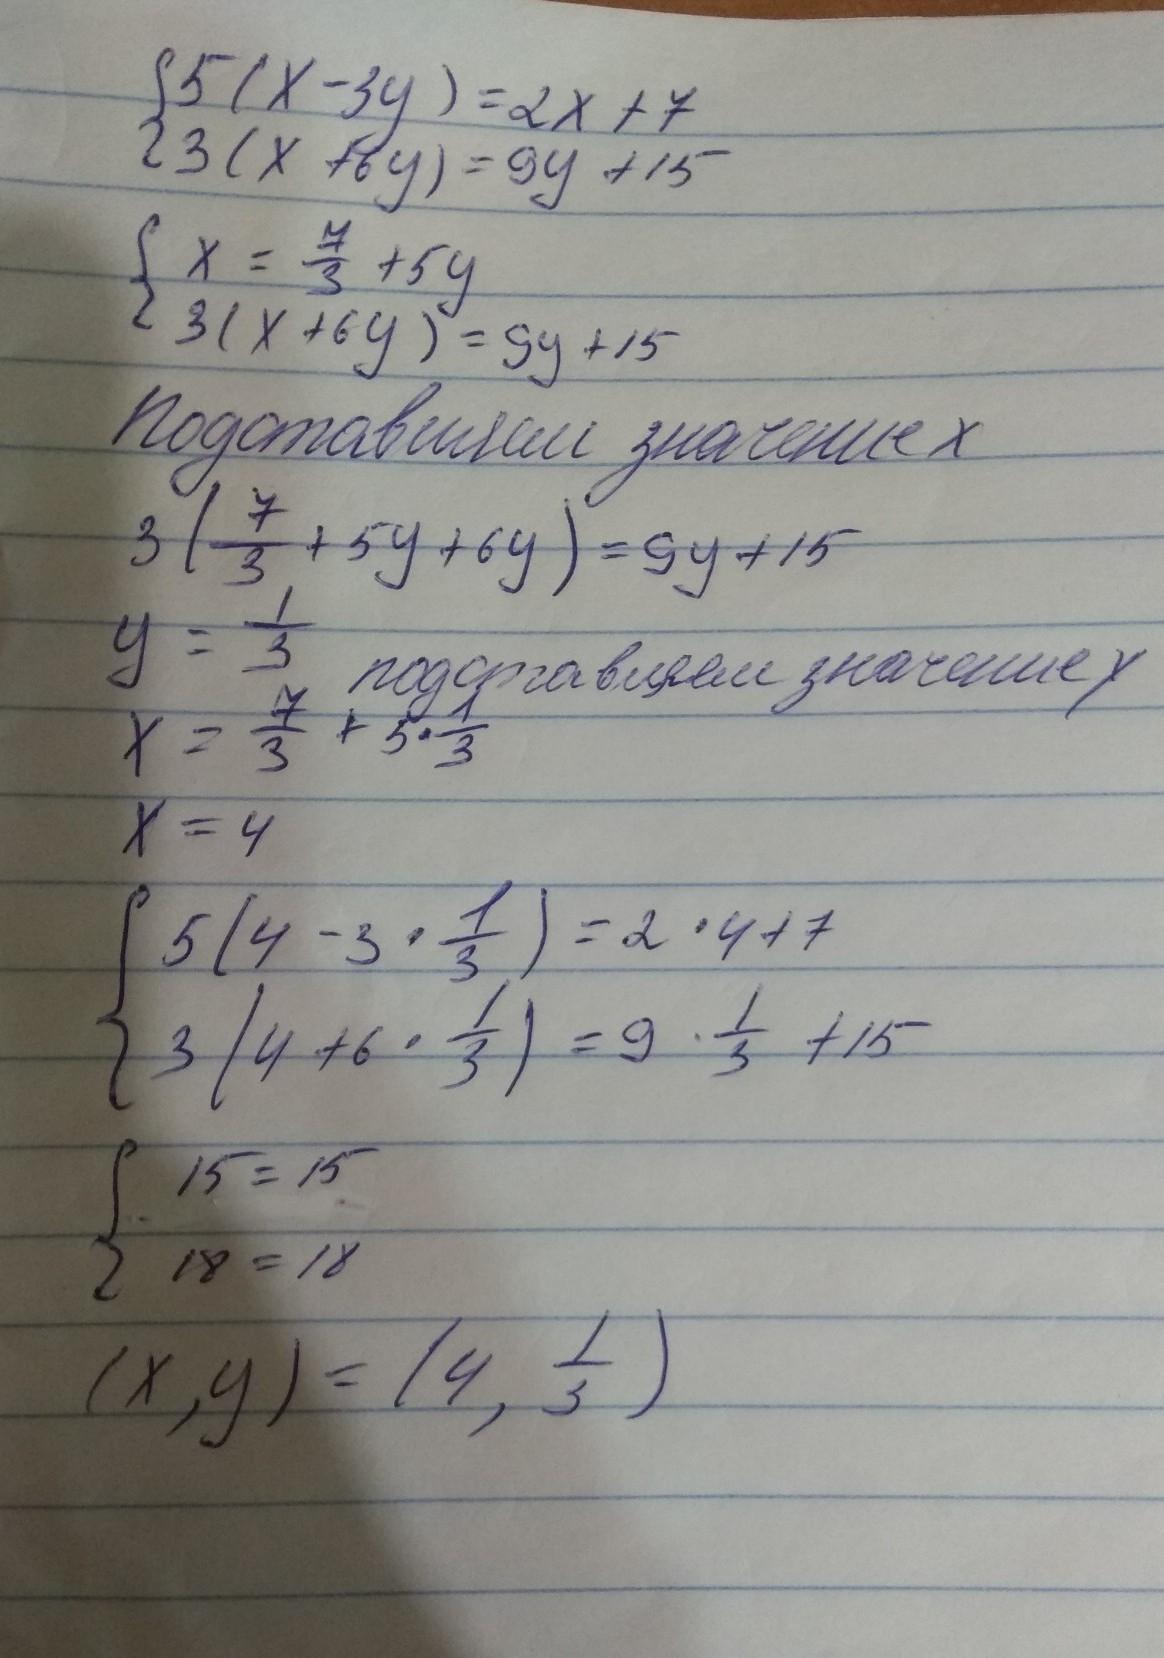 5(x-3y)=2x+7
3(x+6y)=9y+15
x=7/3+5y
3(x+6y)=9y+15
Подставляем значение x
3(7/3+5y+6y)=9y+15
y=1/3
подставляем значение y
x=7/3+5·1/3
x=4
5(4-3·1/3)=2·4+7
3(4+6·1/3)=9·1/3+15
15=15
18=18
(x,y)=(4,1/3)